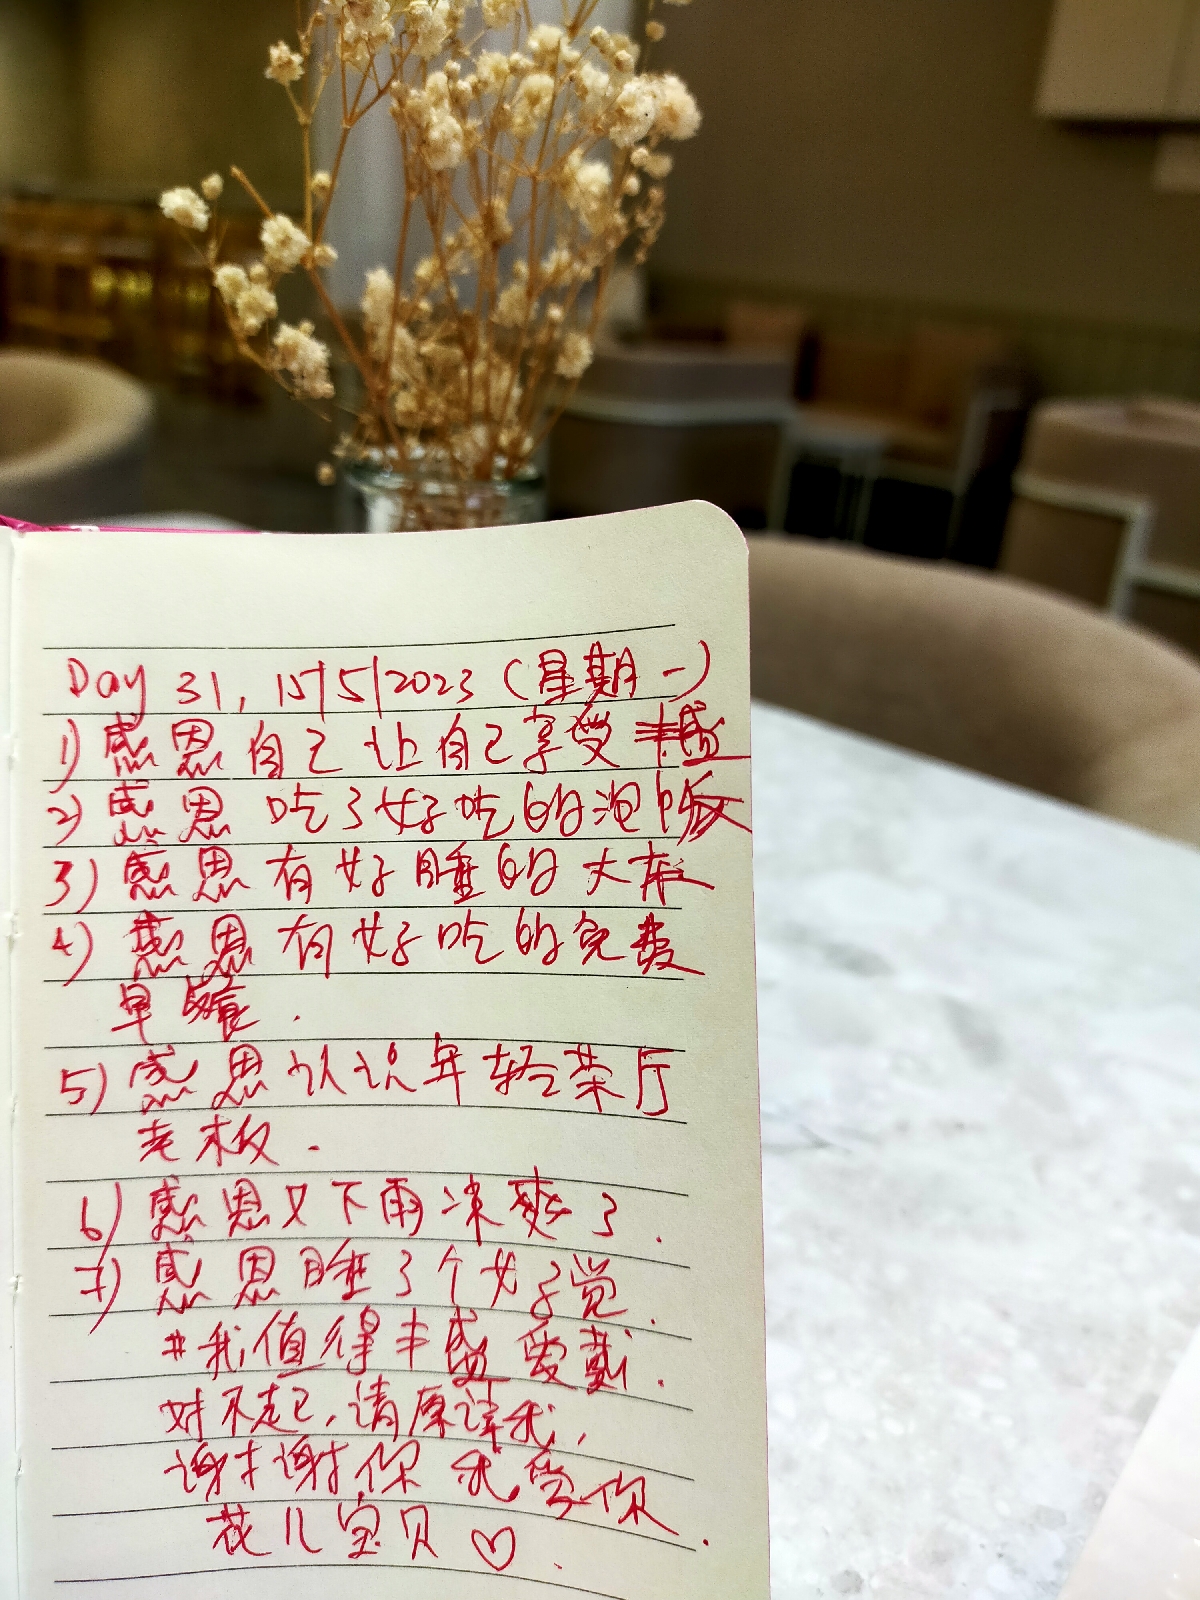 Day 31, 15/5/2023 (星期一)
1) 感恩自己让自己享受丰盛
2) 感恩吃了好好吃的泡饭
3) 感恩有好睡的大床
4) 感恩有好吃的免费
早餐.
5) 感恩认识年轻茶厅
老板.
6) 感恩又下雨凉爽了.
7) 感恩睡了个好觉.
#我值得丰盛爱戴.
对不起,请原谅我,
谢谢你 我爱你.
花儿宝贝♡.